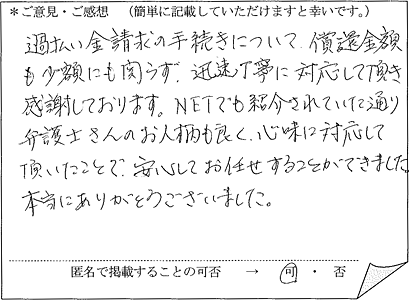 *ご意見・ご感想　(簡単に記載していただけますと幸いです。)
過払い金請求の手続きについて、償還金額
も少額にも関らず、迅速丁寧に対応して頂き
感謝しております。NETでも紹介されていた通り
弁護士さんのお人柄も良く、心味に対応して
頂いたことで、安心してお任せすることができました。
本当にありがとうございました。
匿名で掲載することの可否　→　可　・　否